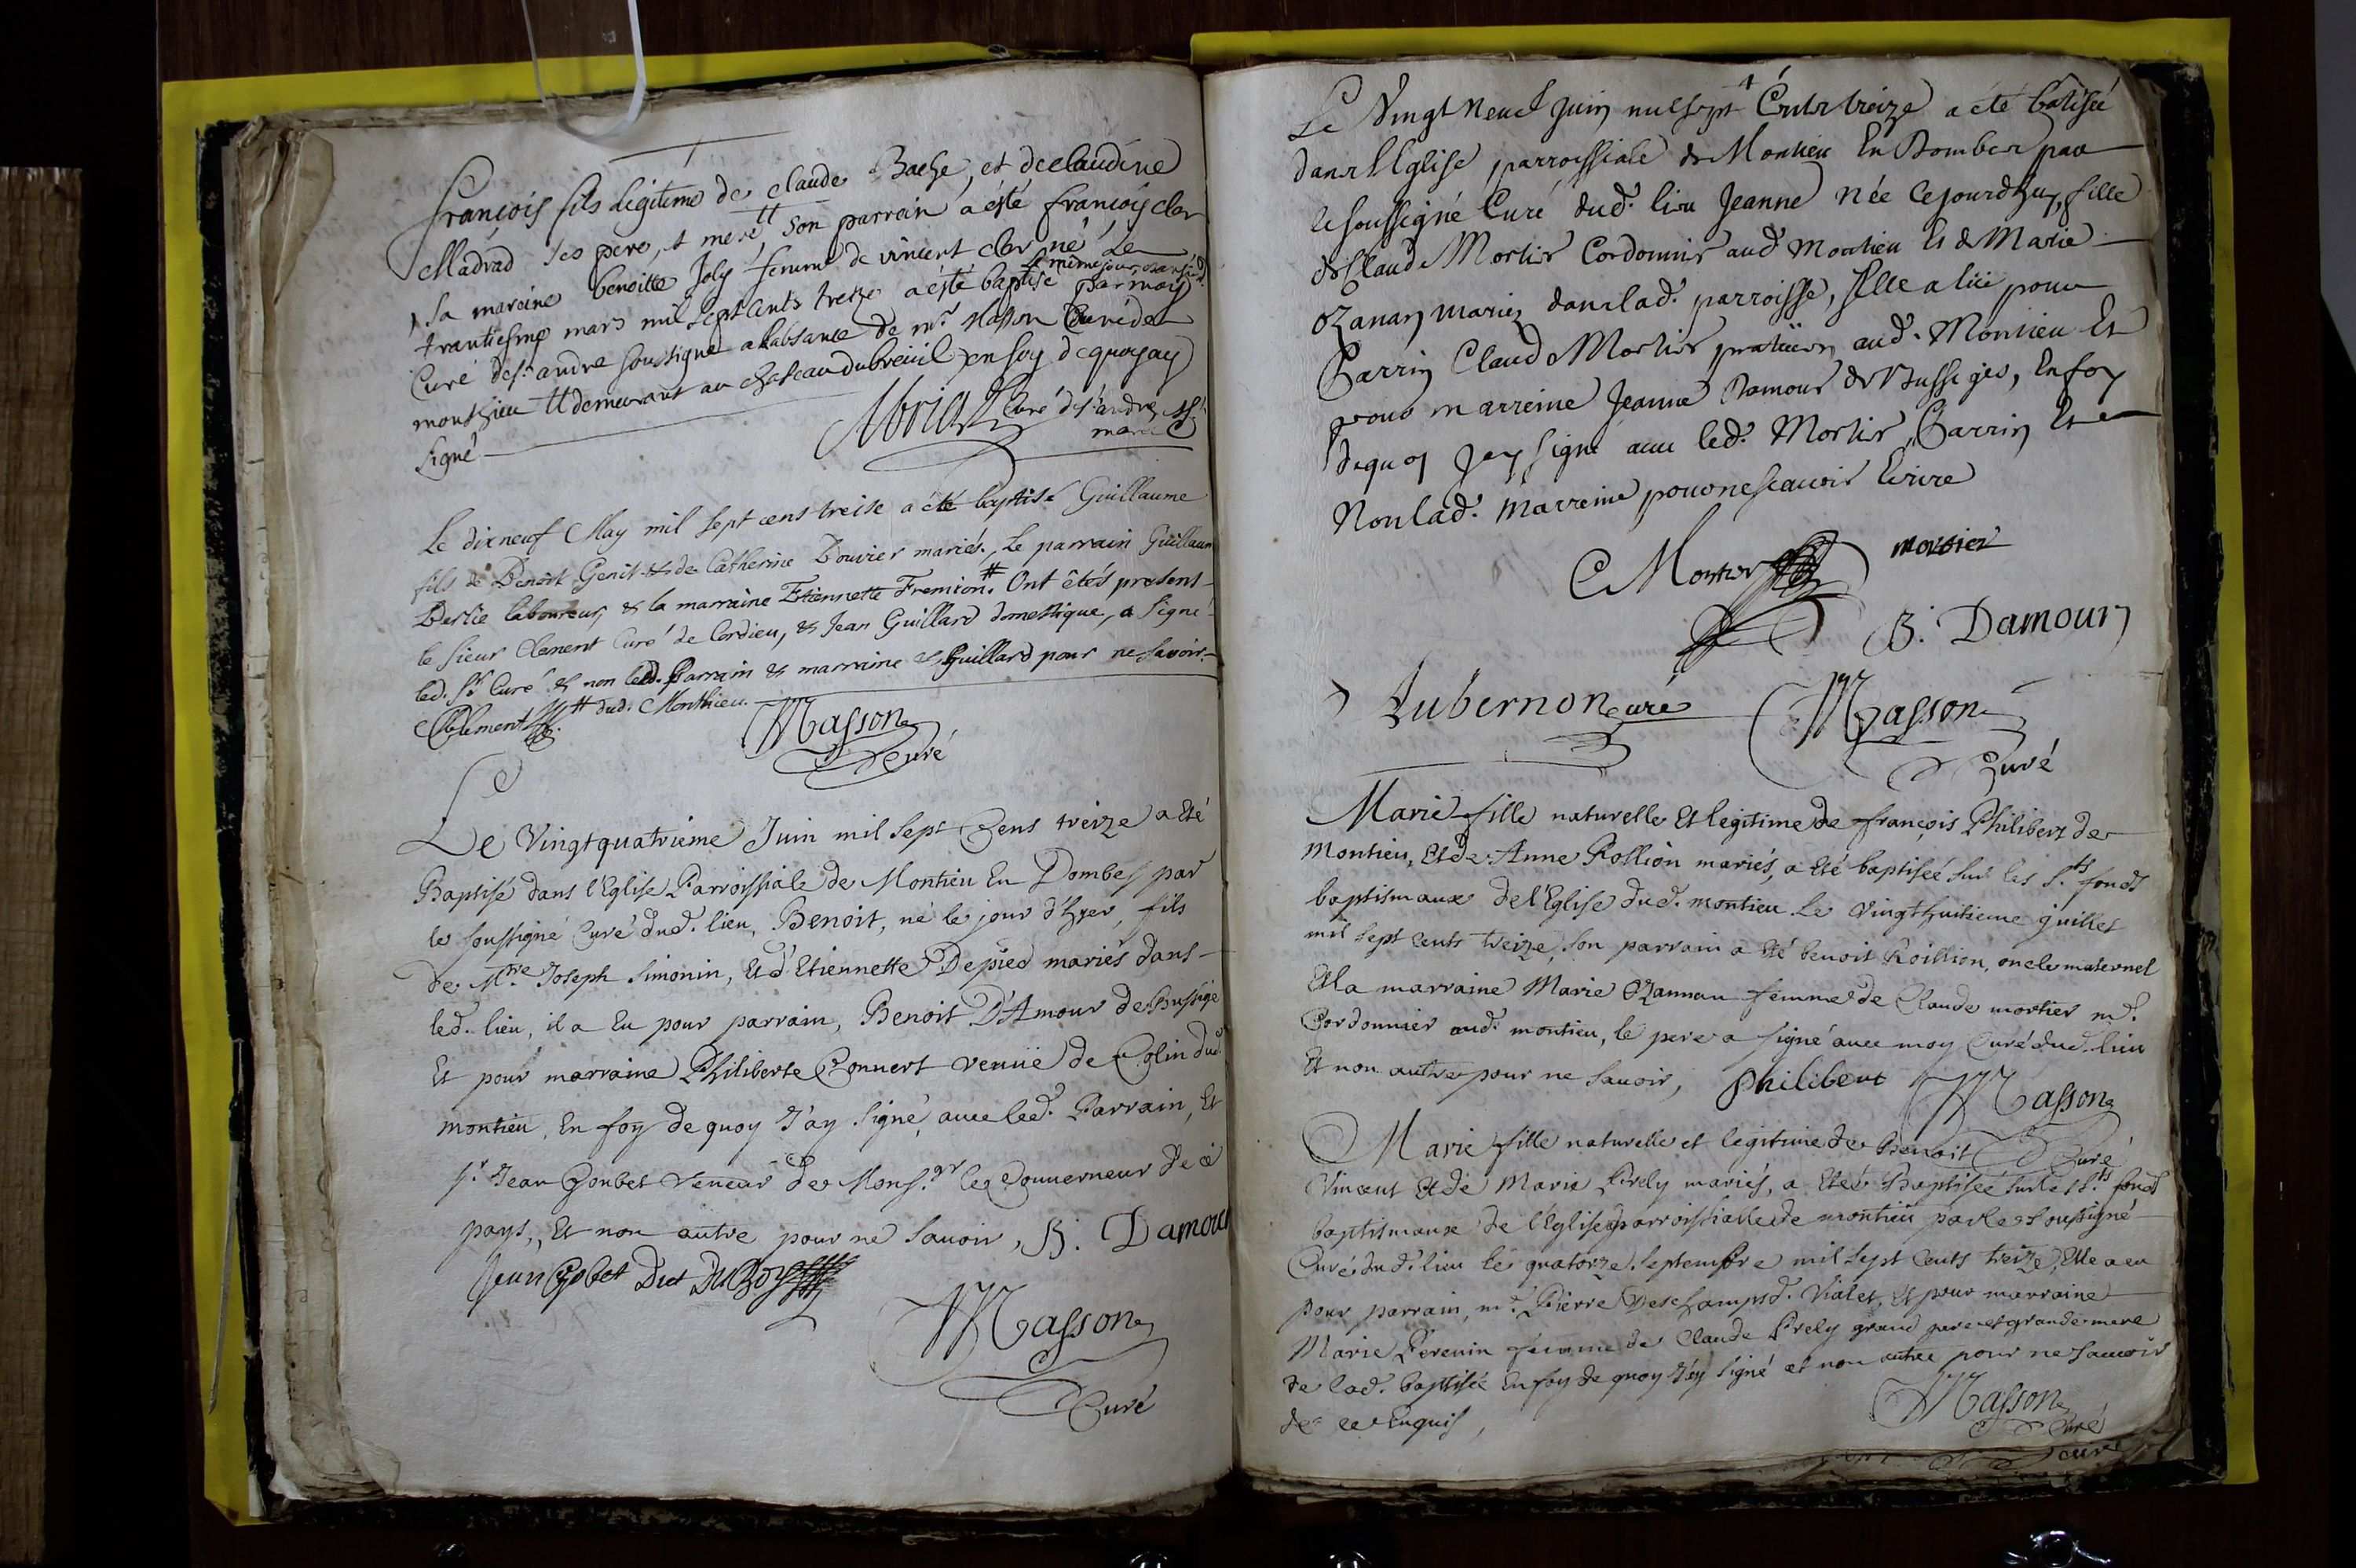 françois fils légitime de claude Bache, et de claudine
Madrad ses pere, et mere tt son parrain a été françois cler
Sa mareine benoitte Joly femme de vincent cler, né Le
le même jour
trantiesme mars mil sept cents treize a été baptisé par moy
Curé de st. andre soussigné a l'absance de mr. Masson Curé de
monthieu tt demeurant au chateau du breüil en foy de quoy ay
signé
Curé de st andre
Le dix neuf May mil sept cens treise a été baptisé Guillaume
fils de Benoit Genit & de Catherine Bouvier mariés, Le parrain Guillaum
laboureur, & la marraine Etiennette Fremion #. Ont êtés present
le sieur Clement Curé de Cordieu, & Jean Guillard domestique, a signé
led. Sr. Curé & non led. Parrain & marraine & Guillard pour ne savoir.
Clement # dud. Monthieu.
Masson
Curé
Le Vingtquatriéme Juin mil sept Cens treize a eté
Baptisé dans l'Eglise Parroissiale de Montieu En Dombes par
le soussigné Curé dud. lieu, Benoit, né le jour d'hyer, fils
de Mre Joseph Simonin, Et d'Etiennette Depied mariés dans
led. lieu, il a Eu pour parrain, Benoit D'Amour de Bussige
Et pour marraine Philiberte Connert veuüe de Colin dud.
montieu, En foy de quoy J'ay signé, avec led. Parrain, Et
sr. Jean Goubet veneur de Monsgr le Gouverneur de cé
pays, Et non autre pour ne sauoir, B. Damour
Jean Gobet Dit DuBoy
Masson
Curé
Le Vingt Neuf Juin mil sept Cents treize a été batisée
dans l'Eglise parroissiale de Montieu En Dombes par
le soussigné Curé dud. lieu Jeanne née ce jourdhuy, fille
de Claude Mortier Cordonnier aud. Montieu Et de Marie
Ozanan mariez dans lad. parroisse, Elle a eüe pour
Parrin Claude Mortier praticien aud. Montieu Et
pour marreine Jeanne Damour de Bussiges, En foy
de quoy Jay signé avec led. Mortier Parrin Et
Non lad. Marreine pour ne sçauoir Ecrire
C Mortier mortier
B. Damour
Aubernon curé Masson
Curé
Marie fille naturelle Et legitime de françois Philibert de
Montieu, Et de Anne Rollion mariés, a eté baptisée sur les Sts. fonds
baptismaux de l'Eglise dud. montieu. Le vingthuitieme juillet
mil sept cents treize, son parrain a eté benoit Roillion, oncle maternel
Et la marraine Marie Ozannan femme de Claude mortier md.
Cordonnier aud. montieu, le pere a signé avec moy Curé dud. lieu
Et non autre pour ne savoir, Philibert Masson
Curé
Marie fille naturelle et legitime de Benoit
Vincent Et de Marie Prely mariés, a Eteé Baptisée sur les Sts. fonds
baptismaux de l'Eglise parroissialle de montieu par le soussigné
Curé dud. lieu le quatorze septembre mil sept cents treize, Elle a eu
pour parrain, md. Pierre Deschamps d. Vialet, Et pour marraine
Marie Perenin femme de Claude Prely grand pere et grande mere
de lad. baptisée En foy de quoy J'ay signé et non autre pour ne sauoir
de ce Enquis,
Masson
Curé